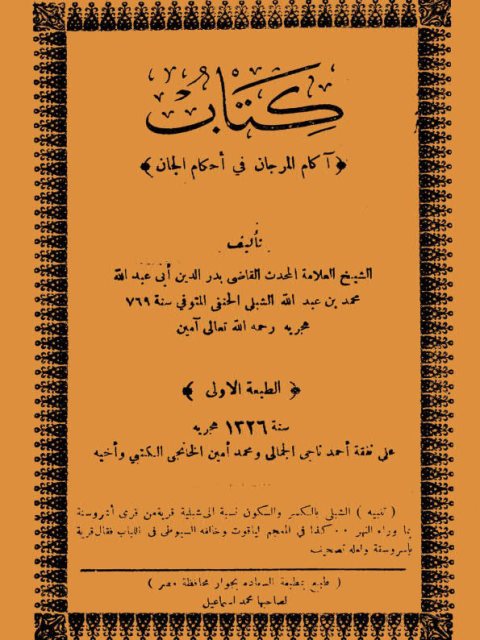 كتاب
﴿ آكام المرجان في أحكام الجان ﴾
تأليف
الشيخ العلامة المحدث القاضى بدر الدين أبى عبد الله
محمد بن عبد الله الشبلى الحنفى المتوفي سنة ٧٦٩
هجريه رحمه الله تعالى آمين
﴿ الطبعة الاولى ﴾
سنة ١٣٢٦ هجريه
على نفقة أحمد ناجى الجمالى ومحمد أمين الخانجى الكتبي وأخيه
( تنبيه ) الشبلى بالكسر والسكون نسبة الى شبلية قرية من قرى أشروسنة
بما وراء النهر ٠٠ كذا في المعجم لياقوت وخالفه السيوطى فى اللباب فقال قرية
باسروسفة ولعله تصحيف
( طبع بمطبعة السعاده بجوار محافظة مصر )
لصاحبها محمد اسماعيل